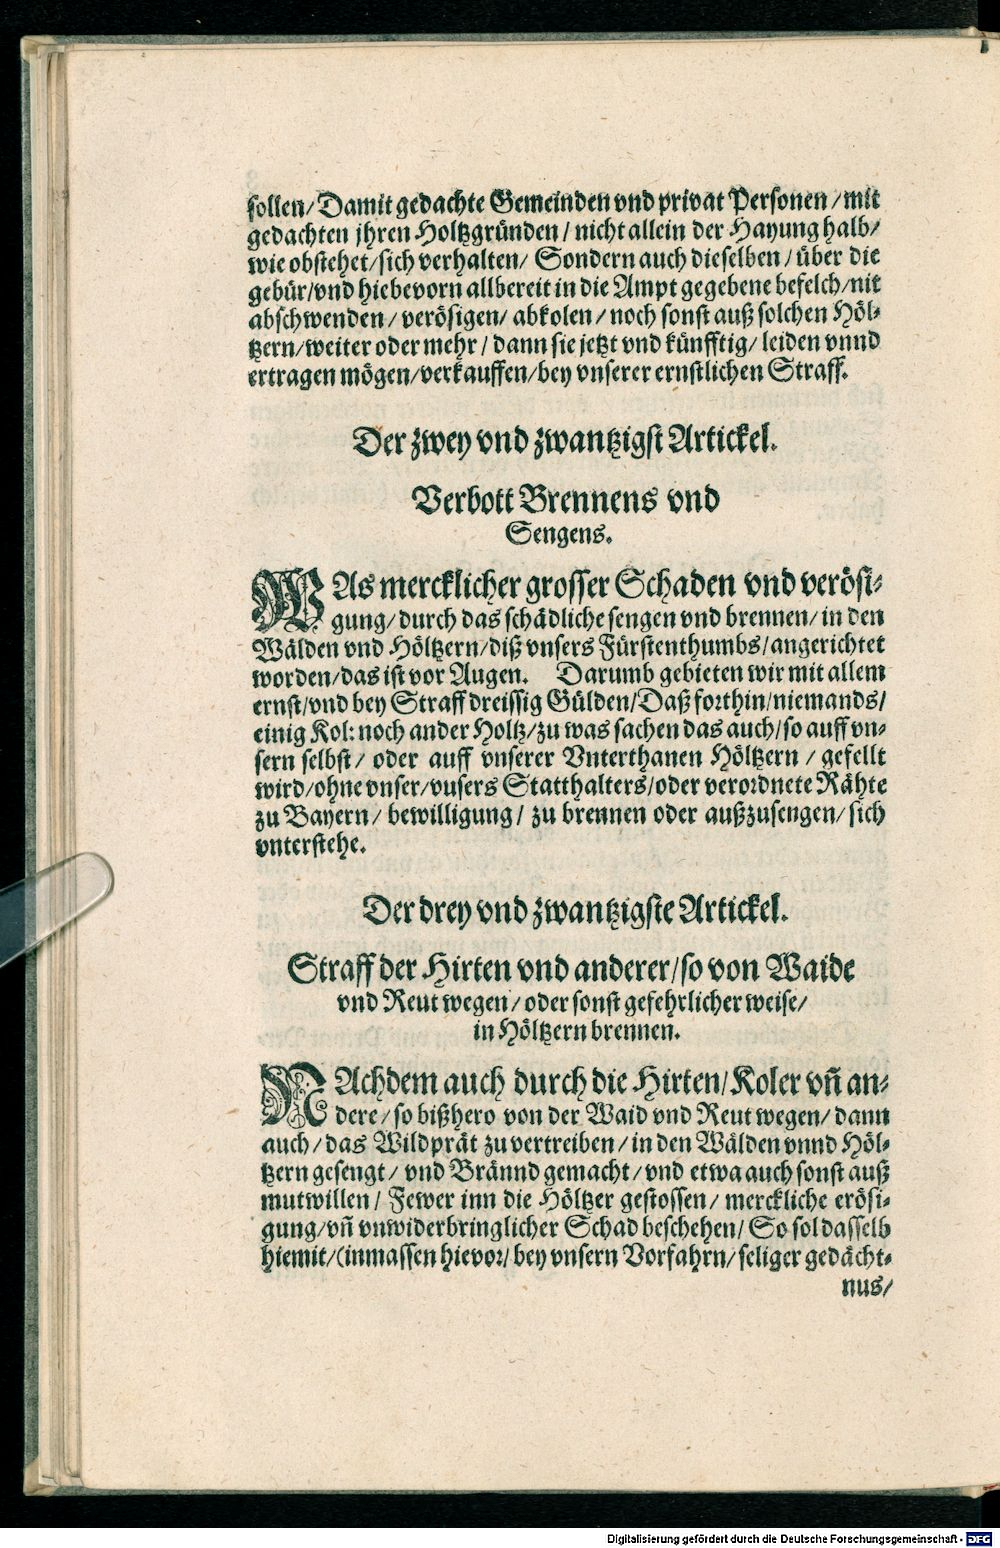 sollen/Damit gedachte Gemeinden vnd privat Personen/mit
gedachten jhren Holtzgründen/nicht allein der Hayung halb/
wie obstehet/sich verhalten/ Sondern auch dieselben/über die
gebür/vnd hiebevorn allbereit in die Ampt gegebene befelch/nit
abschwenden/ verösigen/ abkolen/noch sonst auß solchen Höl-
tzern/weiter oder mehr/dann sie jetzt vnd künfftig/ leiden vnnd
ertragen mögen/verkauffen/bey vnserer ernstlichen Straff.
Der zwey vnd zwantzigst Artickel.
Verbott Brennens vnd
Sengens.
WAs mercklicher grosser Schaden vnd verösi-
gung/durch das schädliche sengen vnd brennen/in den
Wälden vnd Höltzern/diß vnsers Fürstenthumbs/angerichtet
worden/das ist vor Augen. Darumb gebieten wir mit allem
ernst/vnd bey Straff dreissig Gülden/Daß forthin/niemands/
einig Kol: noch ander Holtz/zu was sachen das auch/so auff vn-
sern selbst/ oder auff vnserer Vnterthanen Höltzern/ gefellt
wird/ohne vnser/vusers Statthalters/oder verordnete Rähte
zu Bayern/ bewilligung/ zu brennen oder außzusengen/sich
vnterstehe.
Der drey vnd zwantzigste Artickel.
Straff der Hirten vnd anderer/so von Waide
vnd Reut wegen/oder sonst gefehrlicher weise/
in Höltzern brennen.
NAchdem auch durch die Hirten/Koler vñ an-
dere/so bißhero von der Waid vnd Reut wegen/dann
auch/das Wildprät zu vertreiben/in den Wälden vnnd Höl-
tzern gesengt/ vnd Brännd gemacht/vnd etwa auch sonst auß
mutwillen/ Fewer inn die Höltzer gestossen/ merckliche erösi-
gung/vñ vnwiderbringlicher Schad beschehen/ So sol dasselb
hiemit/(inmassen hievor/bey vnsern Vorfahrn/seliger gedächt-
nus/
Digitalisierung gefördert durch die Deutsche Forschungsgemeinschaft - DFG